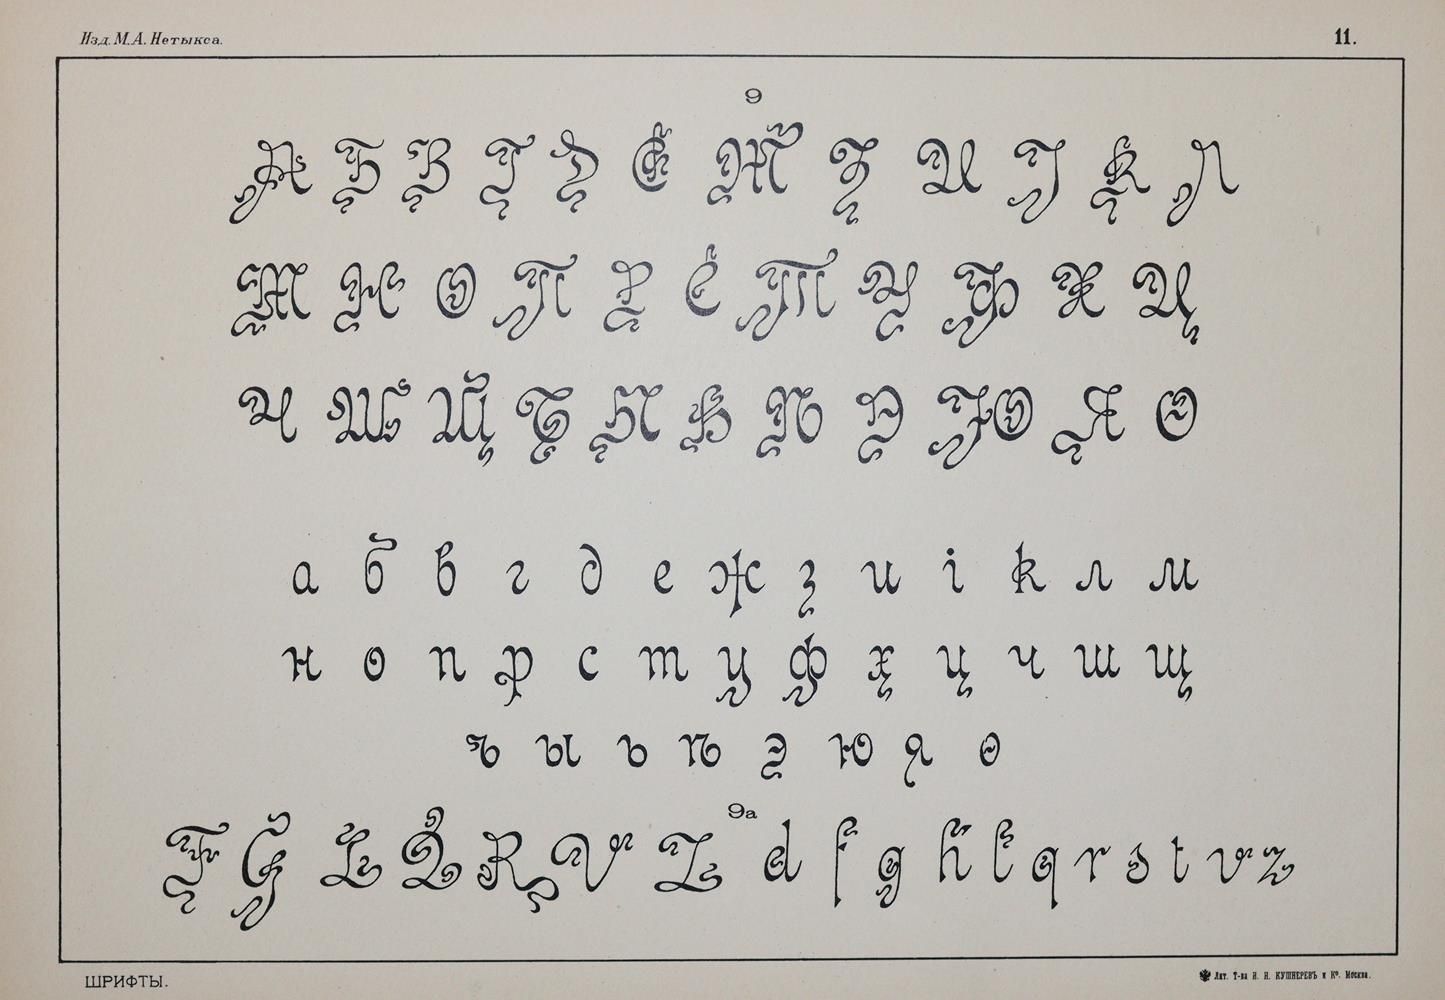 Изд. М.А. Нетыкса.
11.
9
А Б В Г Д Е Ж З И І К Л
М Н О П Р С Т У Ф Х Ц
Ч Ш Щ Ъ Ы Ь Ѣ Э Ю Я Ѳ
а б в г д е ж з и і к л м
н о п р с т у ф х ц ч ш щ
ъ ы ь ѣ э ю я ѳ
9а
F G L Q R V Z d f g h l q r s t v z
ШРИФТЫ.
Лит. Т-ва И. Н. КУШНЕРЕВЪ и Кº. Москва.